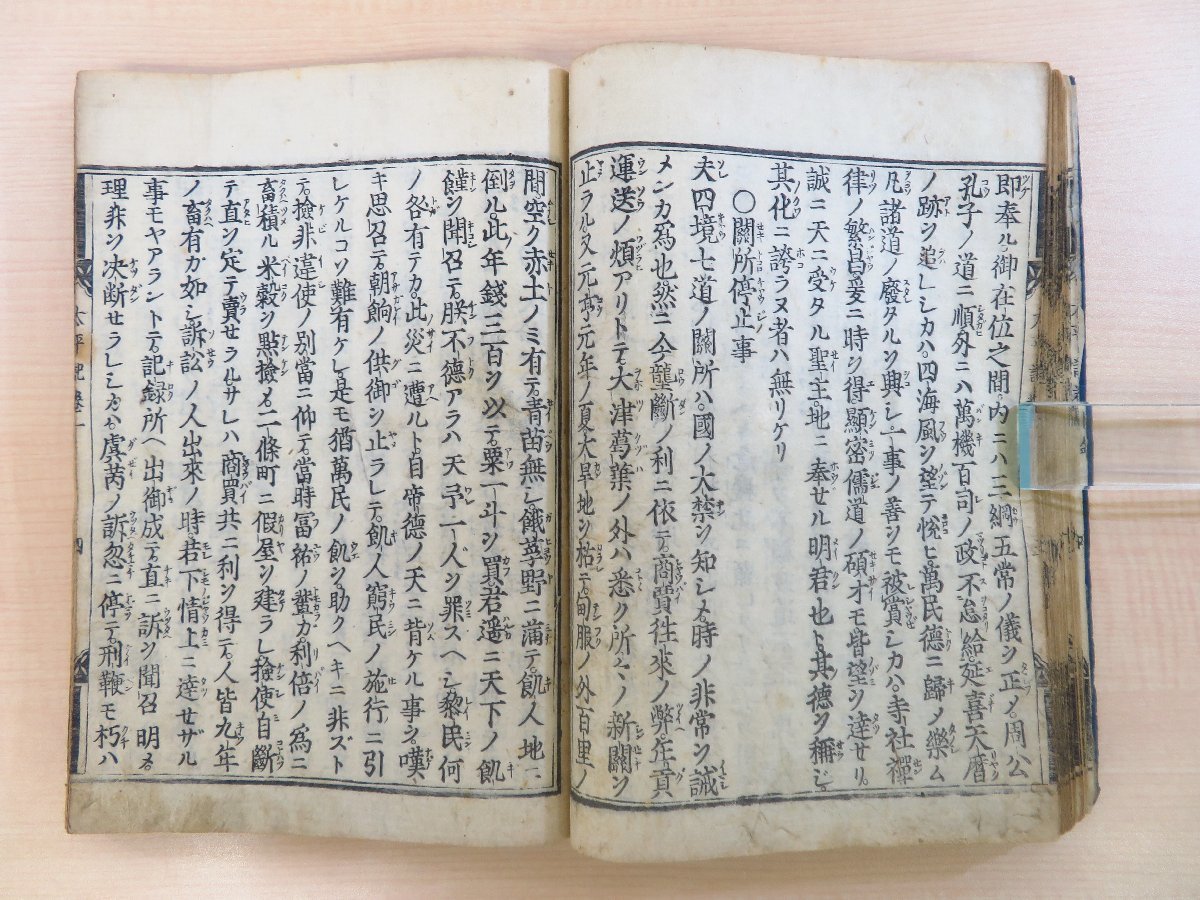 即奉ル御在位之間内ニハ三綱五常ノ儀ヲ正メ周公
孔子ノ道ニ順外ニハ萬機百司ノ政不怠給延喜天暦
ノ跡ヲ追レシカハ四海風ヲ望テ悅ヒ萬民德ニ歸メ樂ム
凡諸道ノ廢タルヲ興シ一事ノ善ヲモ被賞シカハ寺社禪
律ノ繁昌爰ニ時ヲ得顯密儒道ノ碩才モ皆望ヲ達セリ
誠ニ天ニ受タル聖主地ニ奉セル明君也ト其德ヲ稱シ
其化ニ誇ラヌ者ハ無リケリ
〇關所停止事
夫四境七道ノ關所ハ國ノ大禁ヲ知シメ時ノ非常ヲ誡
メンカ爲也然ニ今龍斷ノ利ニ依テ商賈往來ノ弊年貢
運送ノ煩アリトテ大津葛葉ノ外ハ悉ク所々ノ新關ヲ
止ラル又元亨元年ノ夏大旱地ヲ枯テ甸服ノ外百里ノ
間空ク赤土ノミ有テ青苗無シ餓莩野ニ滿テ飢人地ニ
倒ル此年錢三百ヲ以テ粟一斗ヲ買君遥ニ天下ノ飢
饉ヲ聞召テ朕不德アラハ天予一人ヲ罪スヘシ黎民何
ノ咎有テカ此災ニ遭ルト自帝德ノ天ニ背ケル事ヲ嘆
キ思召テ朝餉ノ供御ヲ止ラレテ飢人窮民ノ施行ニ引
レケルコソ難有ケレ是モ猶萬民ノ飢ヲ助クヘキニ非ズト
テ檢非違使ノ別當ニ仰テ當時冨祐ノ輩カ利倍ノ爲ニ
畜積ル米穀ヲ點檢メ二條町ニ假屋ヲ建ラレ檢使自斷
テ直ヲ定テ賣セラルサレハ商買共ニ利ヲ得テ人皆九年
ノ畜有カ如シ訴訟ノ人出來ノ時若下情上ニ達セザル
事モヤアラントテ記録所ヘ出御成テ直ニ訴ヲ聞召明メ
理非ヲ決斷セラレシカハ虞芮ノ訴忽ニ停テ刑鞭モ朽ハ
太平記卷一
四